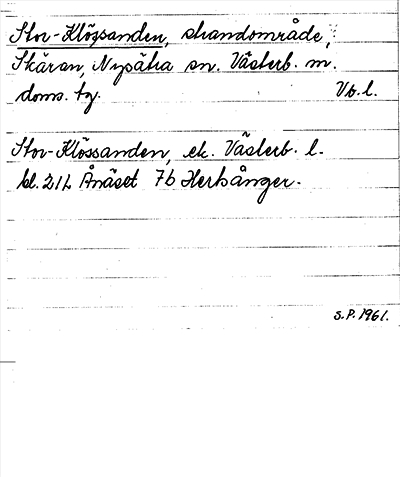 Stor-Klössanden, strandområde,
Skäran, Nysätra sn. Västerb. m.
doms. tg. Vb.l.
Stor-Klössanden, ek. Västerb. l.
bl. 21L Ånäset 7b Herrånger.
S.P. 1961.